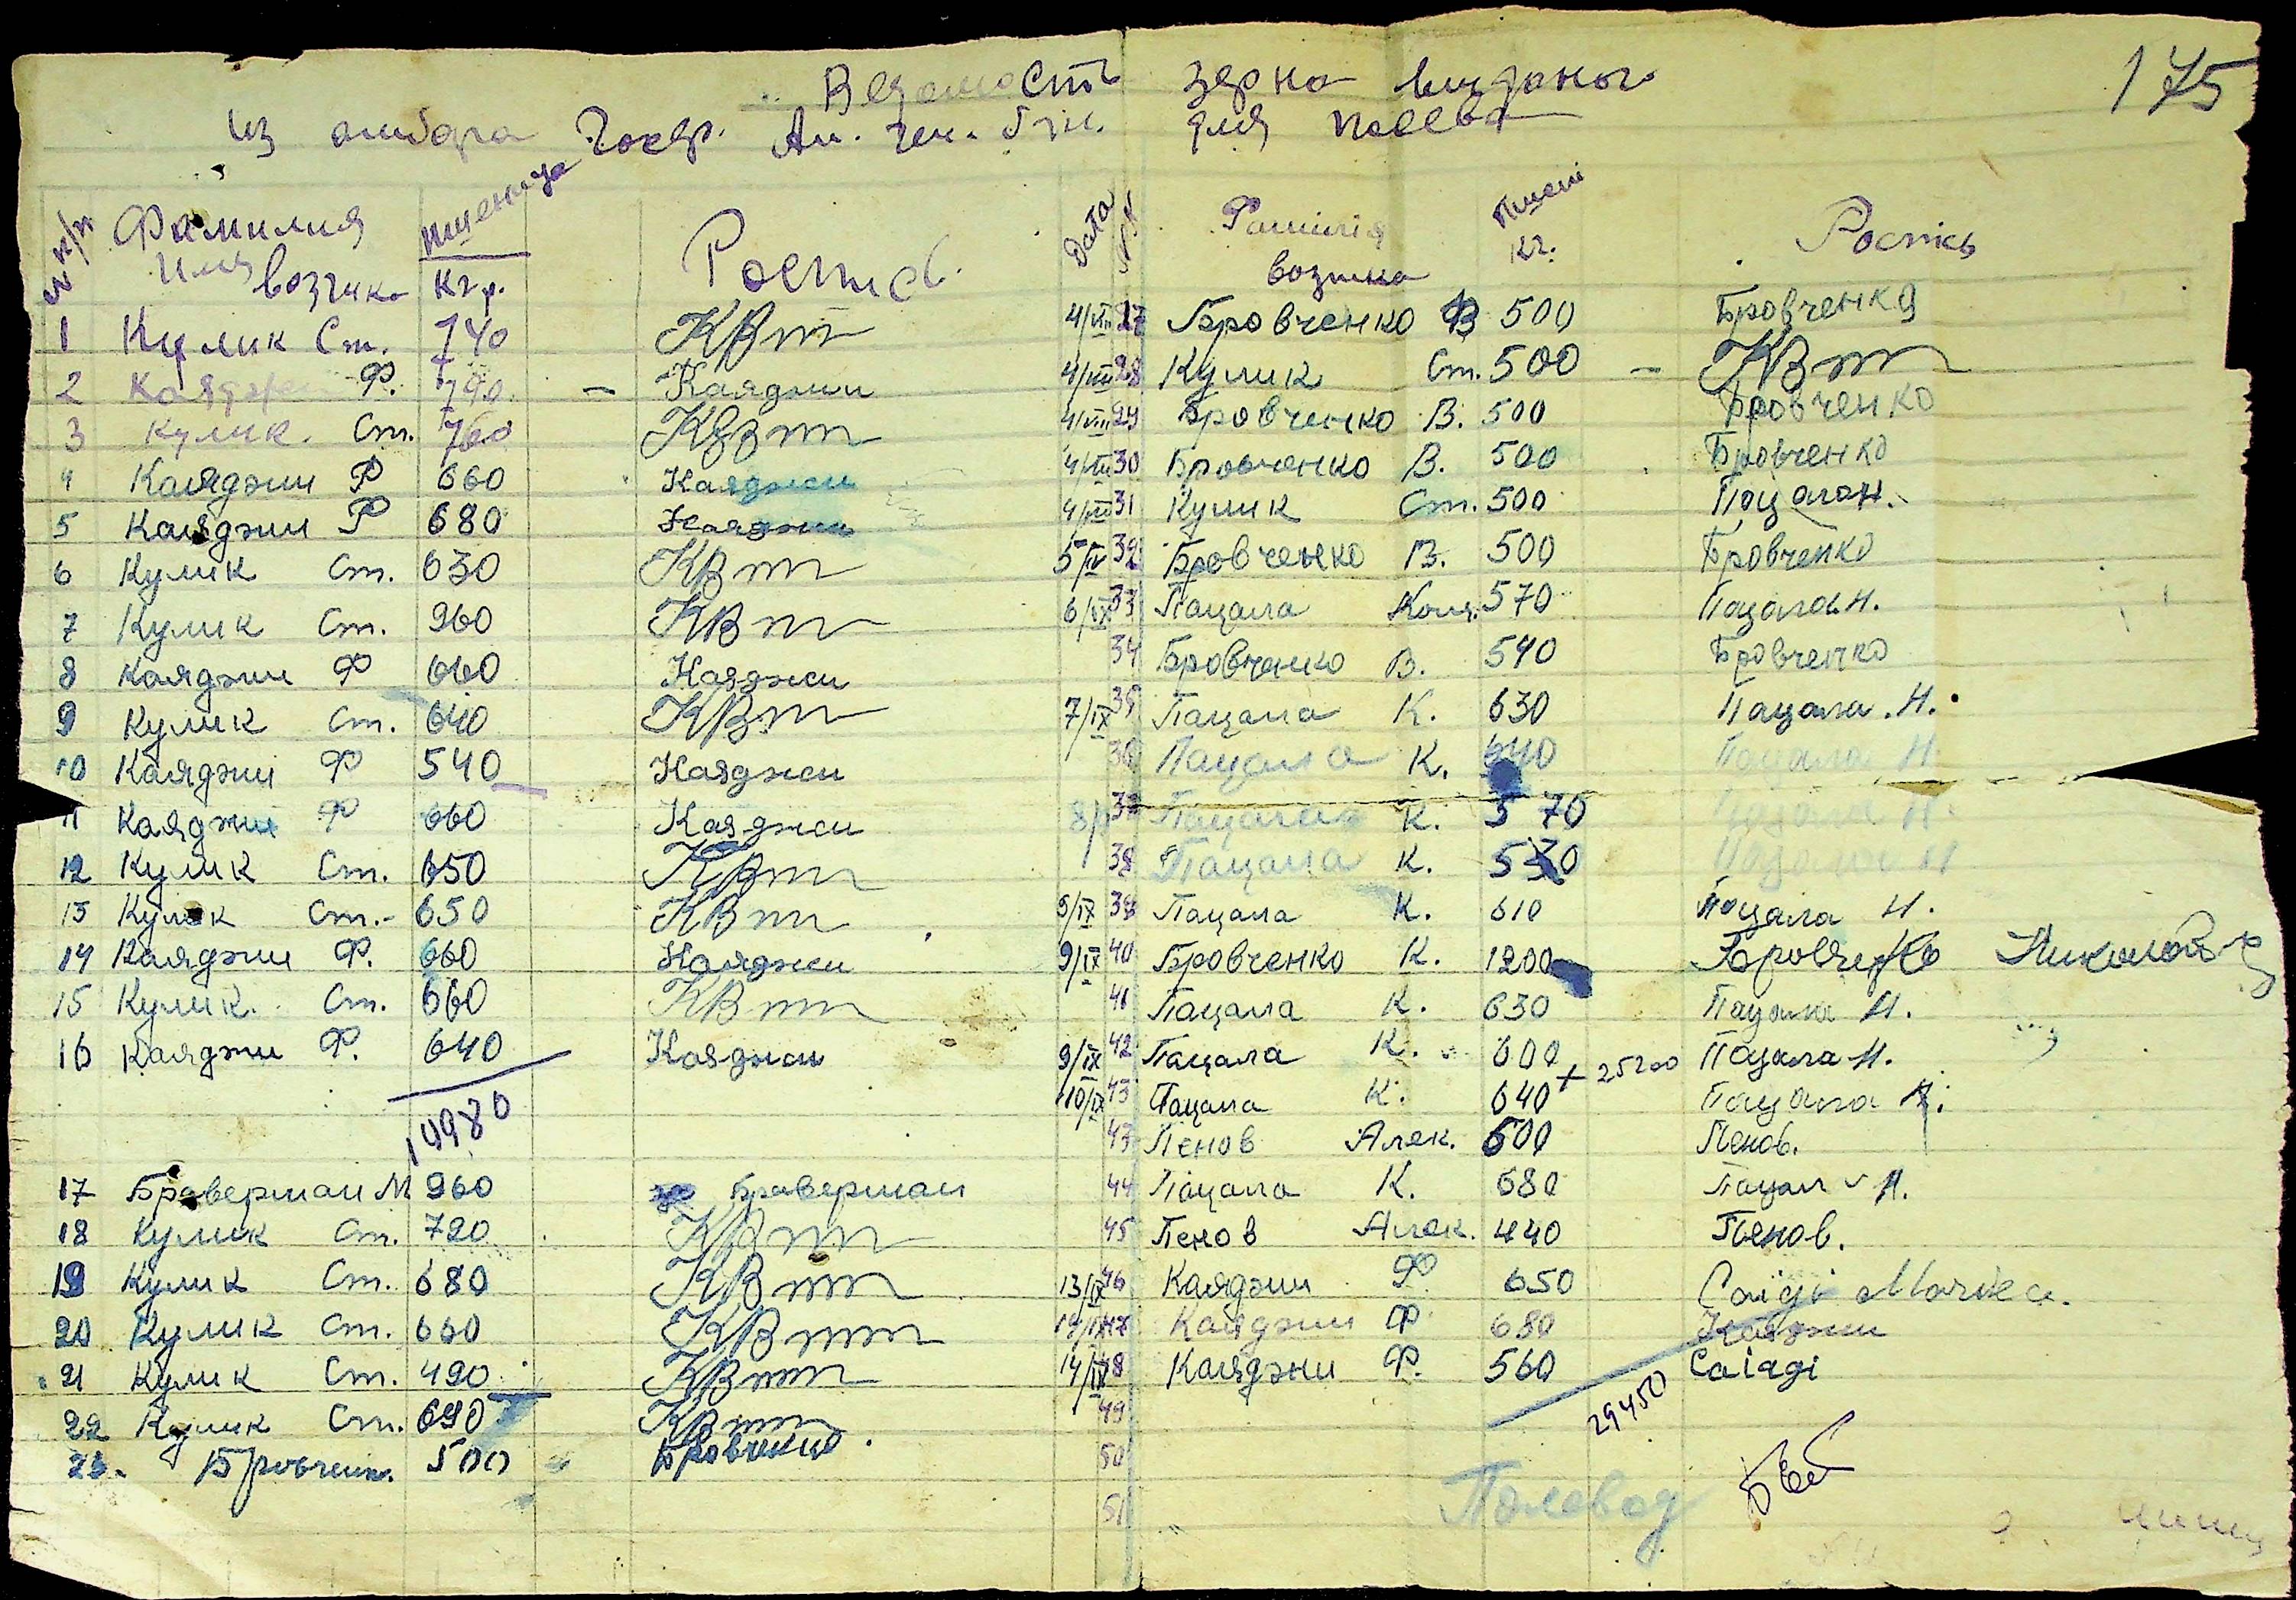 175
Ведомость зерна выдано
из амбара для посева
№ п/п Фамилия Имя возчика пшеница кгр. Роспись
1 Кулик Ст. 740 КВт
2 Каяджи Ф. 790 – Каяджи
3 Кулик. Ст. 760 КВт
4 Каяджи Ф 660 Каяджи
5 Каяджи Ф 680 Каяджи
6 Кулик Ст. 630 КВт
7 Кулик Ст. 960 КВт
8 Каяджи Ф 660 Каяджи
9 Кулик Ст. 640 КВт
10 Каяджи Ф 540 Каяджи
11 Каяджи Ф 660 Каяджи
12 Кулик Ст. 650 КВт
13 Кулик Ст. 650 КВт
14 Каяджи Ф. 660 Каяджи
15 Кулик. Ст. 660 КВт
16 Каяджи Ф. 640 Каяджи
10980
17 Браверман М 960 Браверман
18 Кулик Ст. 720 КВт
19 Кулик Ст. 680 КВт
20 Кулик Ст. 660 КВт
21 Кулик Ст. 490 КВт
22 Кулик Ст. 690 КВт
23. Бровченк. 500 Бровченко
Дата Фамилія возчика Пшені кг. Роспись
4/VIII 27 Бровченко В 500 Бровченко
4/VIII 28 Кулик Ст. 500 – КВт
4/VIII 29 Бровченко В. 500 Бровченко
4/VIII 30 Бровченко В. 500 Бровченко
31 Кулик Ст. 500
32 Бровченко В. 500 Бровченко
6/IX 33 Пацала Коля. 570 Пацала Н.
34 Бровченко В. 540 Бровченко
7/IX 35 Пацала К. 630 Пацала. Н.
36 Пацала К. 640 Пацала Н.
37 Пацала К. 570 Пацала Н.
38 Пацала К. 530 Пацала Н
39 Пацала К. 610 Пацала Н.
9/IX 40 Бровченко К. 1200 Бровченко
41 Пацала К. 630 Пацала Н.
9/IX 42 Пацала К. 600 Пацала Н.
+ 25200
10/IX 43 Пацала К. 640 Пацала Н.
43 Пенов Алек. 500 Пенов.
44 Пацала К. 680 Пацал Н.
45 Пенов Алек. 440 Пенов.
13/IX 46 Каяджи Ф 650
14/IX 47 Каяджи Ф. 680 Каяджи
14/IX 48 Каяджи Ф. 560 Саіаді
49 29450
50
51 Полевод